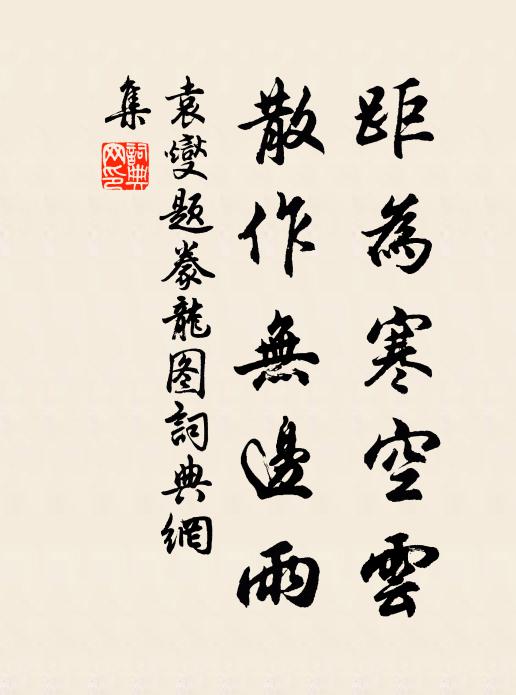 距為寒空雲
散作無邊雨
袁燮題豢龍图詞典網
集
詞典網印